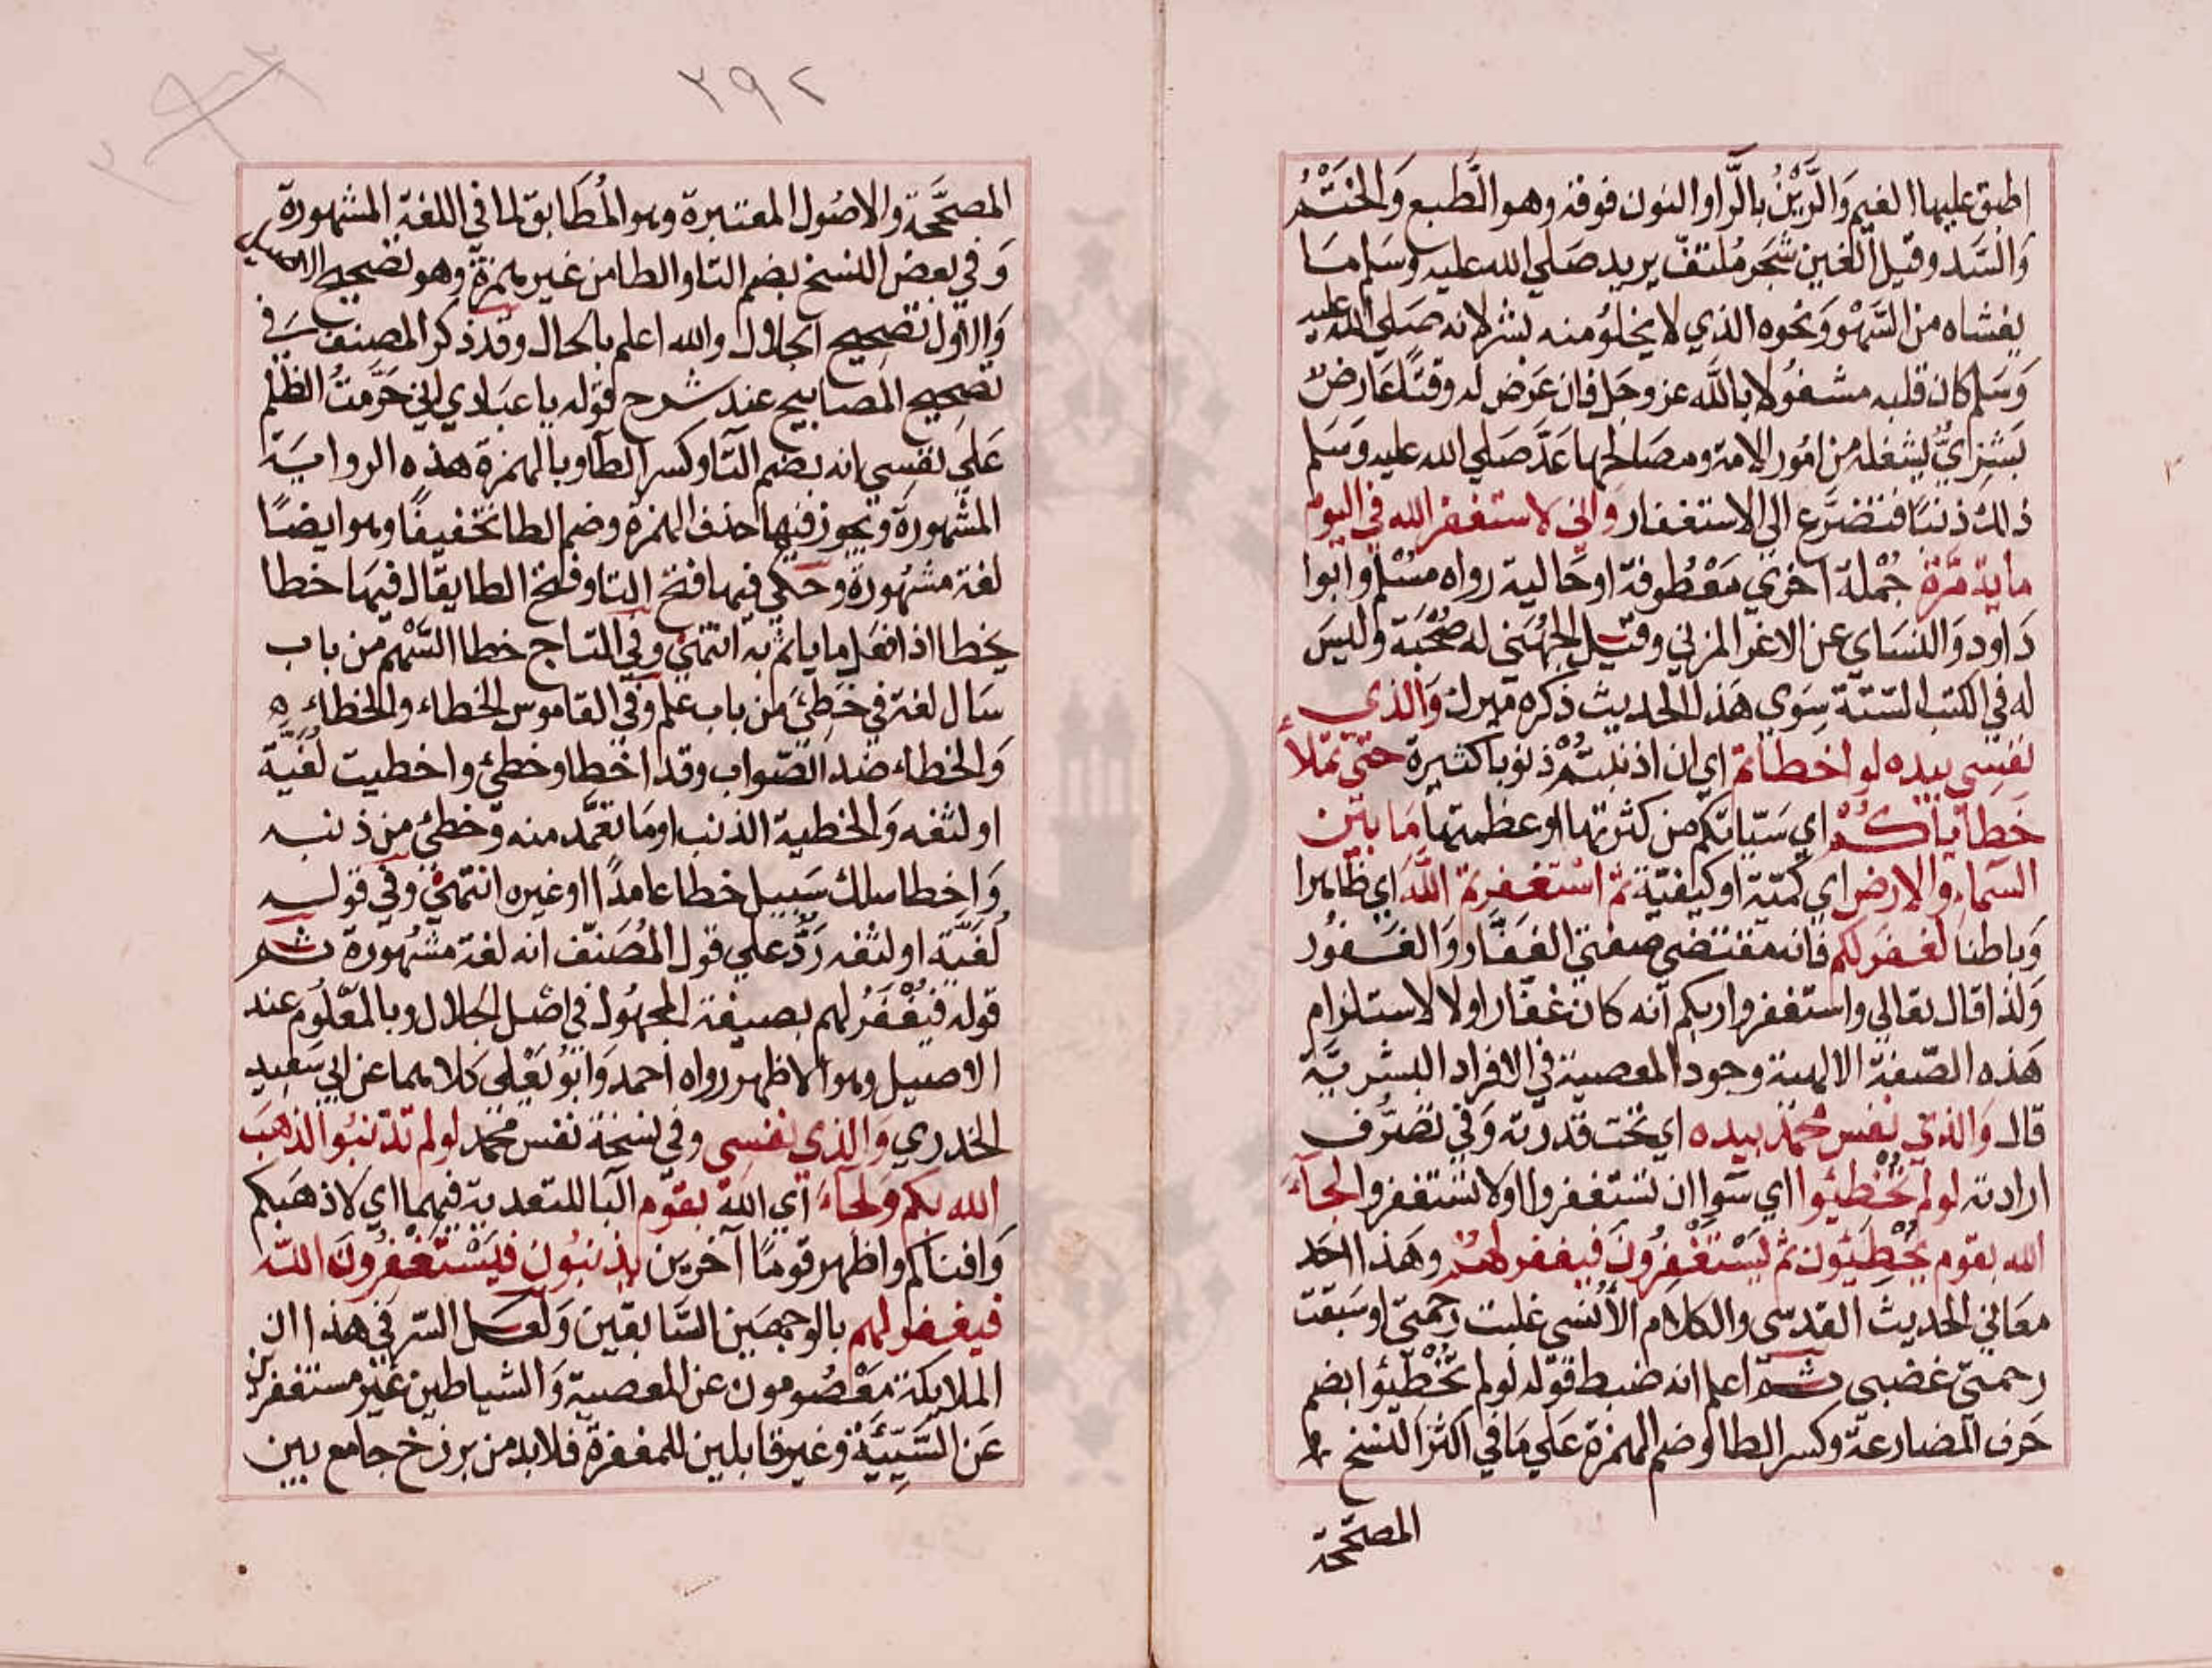 اطبق عليها الغيم والَّريْنُ بالَّرا والنون فوقه وهو الَّطبع وَالختْمُ
وَالسَّد وقيل الغين شَجر مُلتفّ يريد صَلي الله عليه وسَلم مَا
يغشاه من السَّهْو وَنحْوه الذي لا يخلوُ منه بشر لانه صَلي الله عليه
وَسَلم كان قلبه مشغُولا بالله عز وجل فان عَرَض له وقتًا عَارضٌ
بَشريٌّ يشغله من امُور الامة ومصَالحها عَدَّ صَلي الله عليه وَسَلم
ذلك ذنبًا فتضرَّع الي الاستغفار واني لاستغفر الله في اليوم
ماية مَّرة جُمْلة اخري مَعْطُوفة او حَالية رواه مسْلم وابوا
دَاود وَالنسَاي عن الاغر المزني وقيل الجهَني له صُحْبَة وليسَ
له في الكتب الستة سِوَي هَذا الحديث ذكره ميرك وَالذي
نفسِي بيده لو اخطاتم اي ان اذنبتمْ ذنوبا كثيرة حتي تملأ
خَطاياكُمْ اي سَيّاتكم من كثرتها او عظمتها مَا بَيْن
السَّماء والارض اي كمّية او كيفيّة ثمّ اسْتغفرتم اللهَ اي ظاهرا
وَباطنا لغفَر لكم فانه مقتضي صفتي الغفَّار وَالغَفوُر
وَلذا قال تعالي واستغفروا ربكم انه كان غفارا ولا لاستلزام
هَذه الصّفة الالهية وجود المعصية في الافراد البشريَّة
قال وَالذي نفس محمّد بيده اي تحت قدرته وَفي تصَرُّف
ارادته لولم تخْطِئوا اي سَوا ان تستغفروا او لا تستغفروا لجآءَ
الله بقوم يُخْطِئون ثم يَسْتغْفِرُونَ فيغفر لهُمْ وهَذا احَد
معَاني الحديث القدسِّي والكلام الأنسي غلبت رحمتي او سَبَقت
رحمتي غضبي ثمّ اعلم انه ضبط قوله لولم تُخْطِئوا بضم
حَرف المضارعة وكسر الطا وضم الهمزة عَلي مَا في اكثر النسخ
المصَحَّحة
٢٩٢
المصحَّحَة والاصُول المعتبرة وهو المُطَابق لما في اللغة المشهورة
وَفي بعض النسخ بضم التا والطا من غير همْزة وهو تصْحيح الاصيل
وَالاول تصْحيح الجلال والله اعلم بالحال وقد ذكر المصنف في
تصْحيح المصَابيح عند شرح قوله يا عبَادي اني حَرَّمتُ الظلم
عَلي نفسِي انه بضم التا وكسر الطا وبالهمزة هذه الروايَة
المشهورَة وَيجوز فيها حذف الهمزة وضم الطا تخفيفًا وهو ايضًا
لغة مشهُورة وحكي فيها فتح التا وفتح الطا يقال فيهَا خطا
يخطا اذا فعَل ما ياثم به انتهي وفي التاج خطا السَّهْم من باب
سَال لغة في خَطِئَ من باب علم وفي القاموس الخطاء والخطاء
وَالخطاء ضد الصَّواب وقد اخطا وخطئ واخطيت لُغيَّة
او لثغه وَالخطية الذنب او مَا تعَمَّد منه وَخطئ من ذنبه
وَاخطا سلك سَبيل خطا عامدًا او غيره انتهي وفي قوله
لُغَيَّة او لثغه رَدٌّ علي قول المُصَنّف انه لغة مشهُورة ثم
قوله فيُغْفَرُ لهم بصيغة المجهُول في اصْل الجَلال وبالمعْلُوم عند
الاصيل وهو الاظهر رواه احمد وَابوُ يَعْلي كلاهما عن ابي سَعيد
الخدري وَالذي نفسِي وفي نسْخة نفس محمد لولم تذنبُوا لذهَبَ
الله بكم وَلجآءَ اي اللهَ بقوم البا للتعدية فيهما اي لاذهَبكم
وَافناكم واظهر قومًا آخرين يذنبُون فيَسْتغْفِرُونَ اللّهَ
فيغفر لهم بالوجهَين السَّابقين وَلعَل السّر في هذا ان
الملايكة مَعْصُومون عن المعصية وَالشياطين غيْر مستغفرين
عَن السَّيّئَةِ وغير قابلين للمغفرة فلابد من برزخ جامع بين